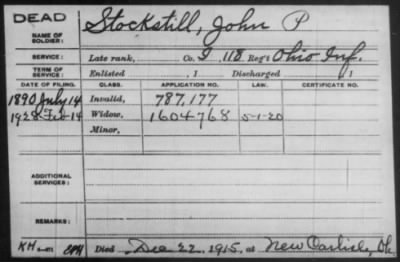 DEAD
NAME OF SOLDIER: Stockstill, John P
SERVICE: Late rank, Co. I, 118 Reg't Ohio Inf.
TERM OF SERVICE: Enlisted , 1 Discharged , 1
DATE OF FILING. CLASS. APPLICATION NO. LAW. CERTIFICATE NO.
1890 July 14 Invalid, 787,177
1928 Feb 14 Widow, 1604768 5-1-20
Minor,
ADDITIONAL SERVICES:
REMARKS:
Died Dec 22, 1915, at New Carlisle, O